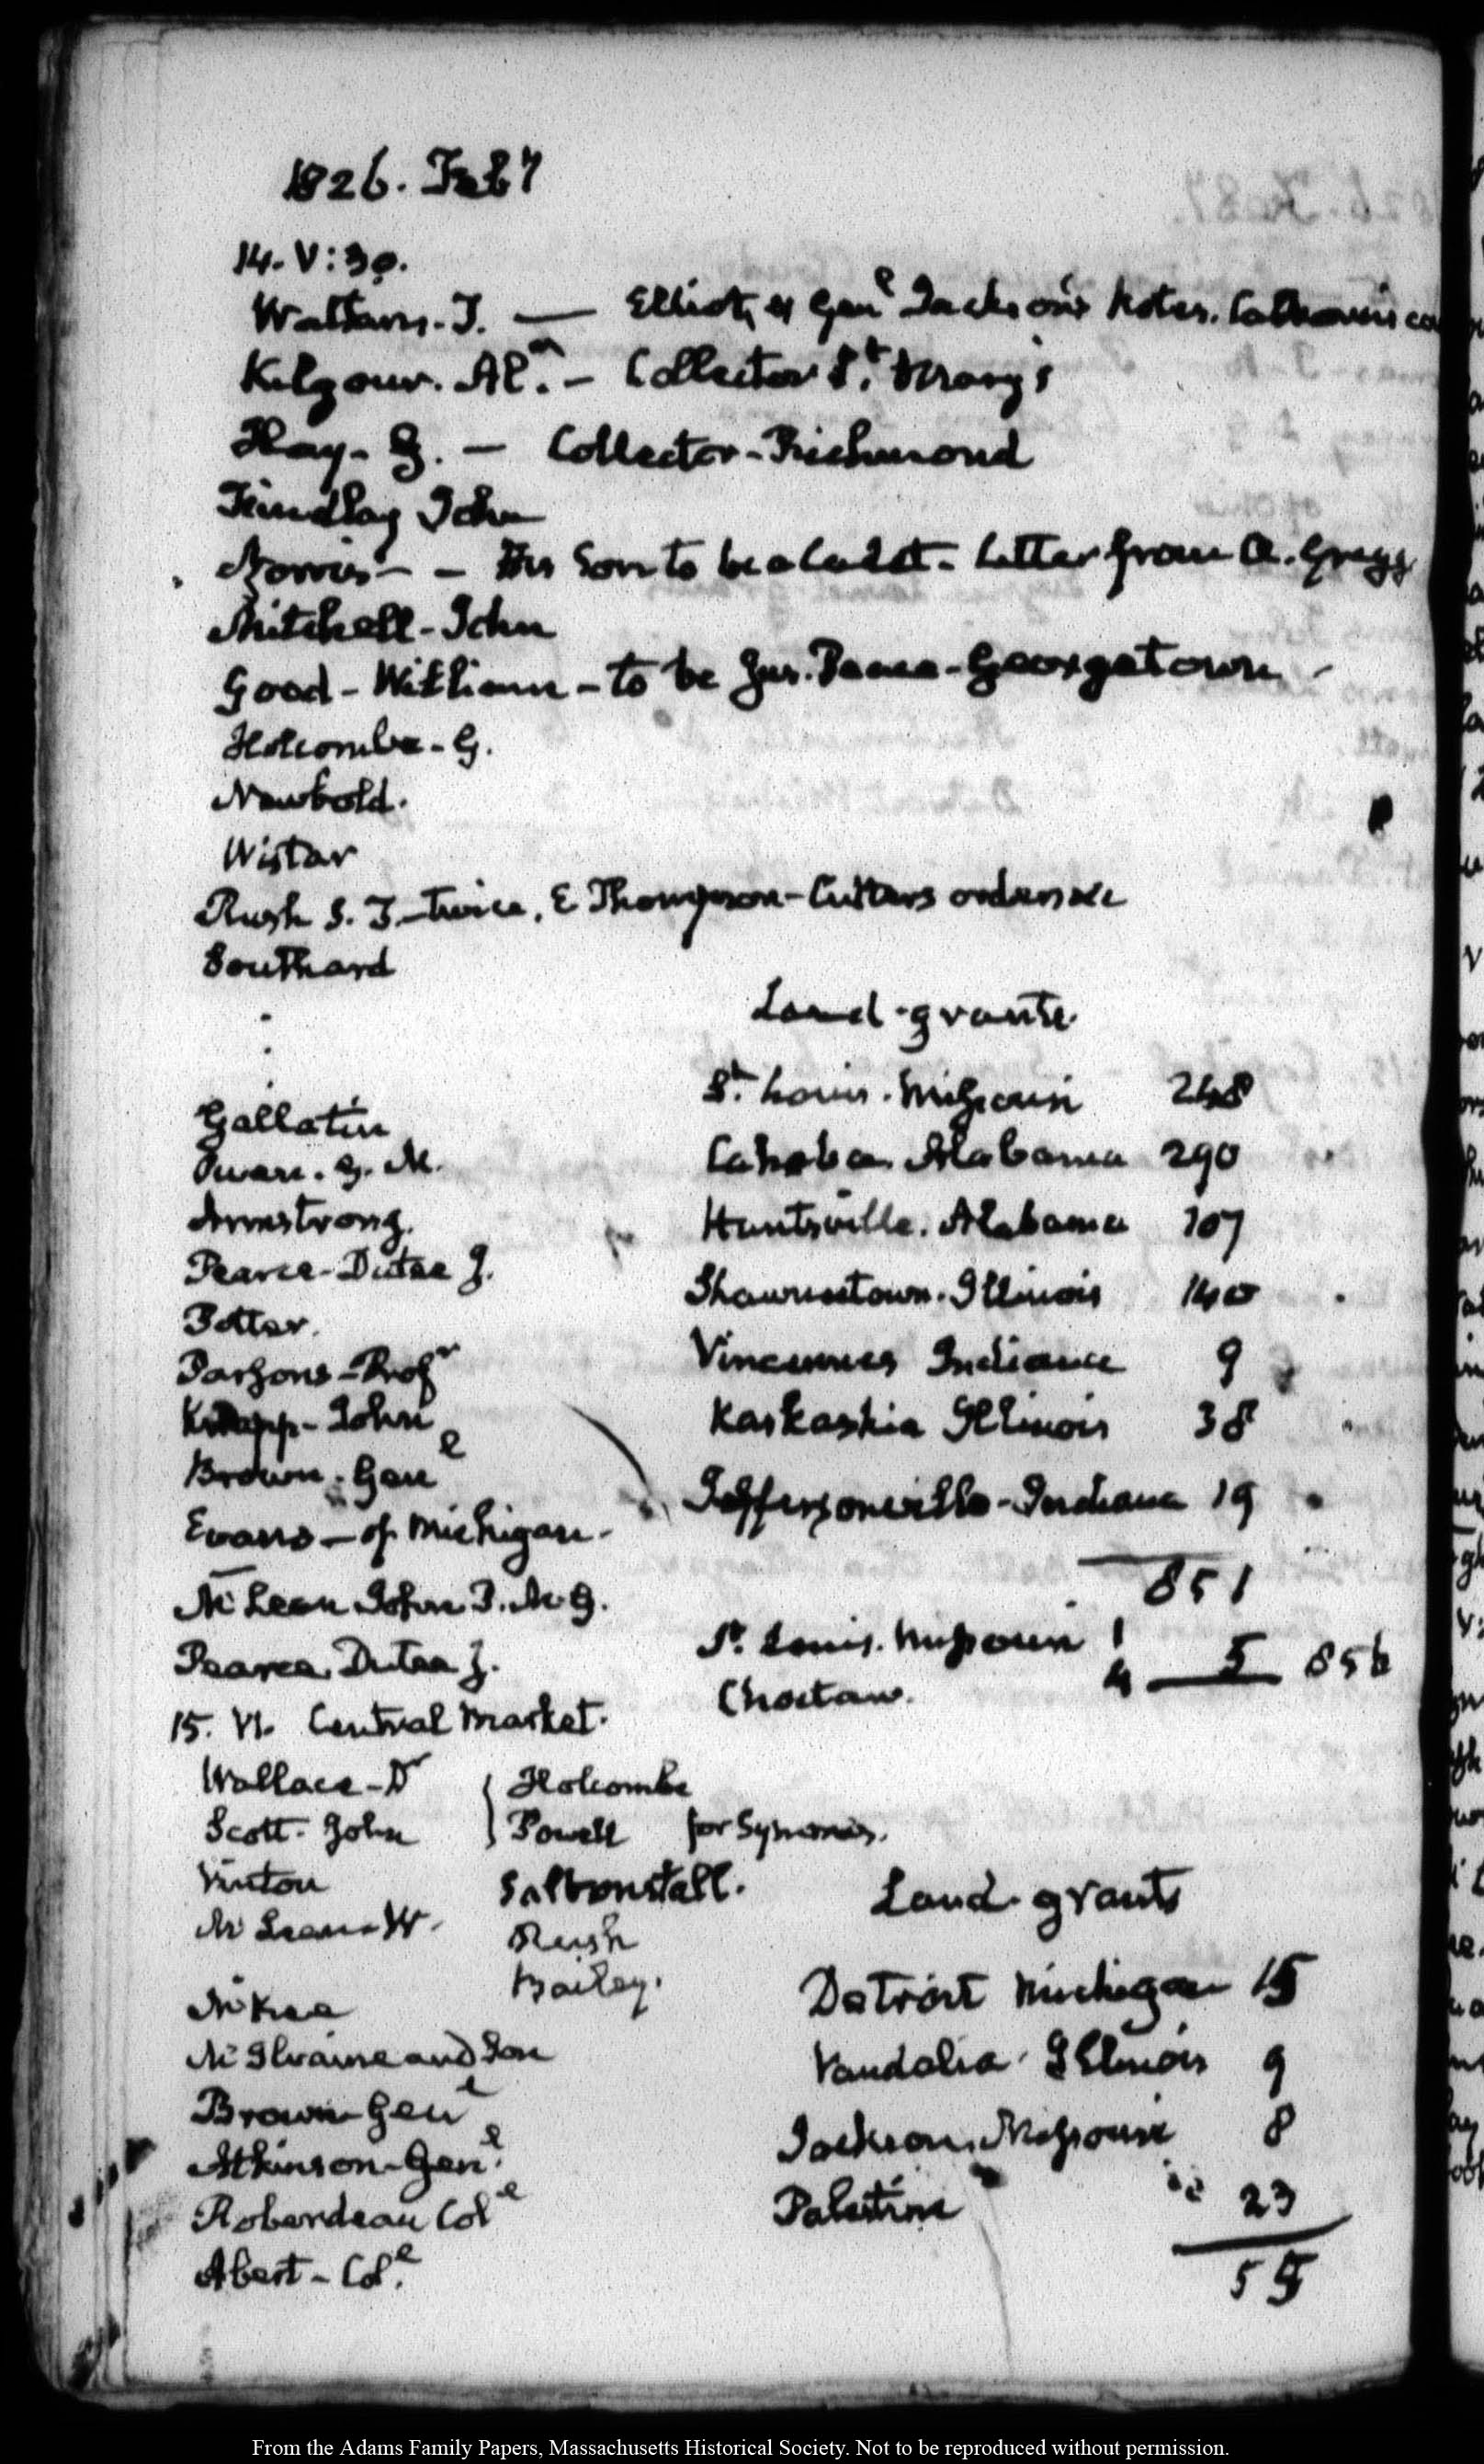 1826. Feby
14. V:30.
Watkins. T. — Elliot, & Genl Jackson's Notes.
Kilgour. Alr. — Collector St. Mary's
Hay. G. — Collector - Richmond
Findlay John
Norris — — His Son to be a Cadet. Letter from A. Gregg
Mitchell - John
Good - William - to be Jus. Peace - Georgetown
Holcombe - G.
Newbold.
Wistar
Rush S. F. twice. E Thompson - Cutters orders
Southard
Land-grants
Gallatin
St. Louis. Missouri 248
Owen. G. M.
Cahaba. Alabama 290
Armstrong.
Huntsville. Alabama 107
Pearce - Dutee J.
Shawneetown. Illinois 140
Potter.
Vincennes Indiana 9
Parsons - Profr
Kaskaskia Illinois 38
Knapp - John
Brown. Genl
Jeffersonville - Indiana 19
Evans - of Michigan -
851
McLean John P. M. G.
St. Louis. Missouri 1
Pearce Dutee J.
Choctaw. 4 — 5 856
15. VI. Central Market.
Wallace - Dr
Holcombe
Scott. John
Powell for Symmes.
Vinton
Saltonstall.
Land-grants
McLean - W.
Rush
Bailey.
Detroit Michigan 15
McKee
McIlvaine and Son
Vandalia. Illinois 9
Brown - Genl
Jackson. Missouri 8
Atkinson - Genl.
Palestine 23
Roberdeau Coll
55
Abert - Coll.
From the Adams Family Papers, Massachusetts Historical Society. Not to be reproduced without permission.